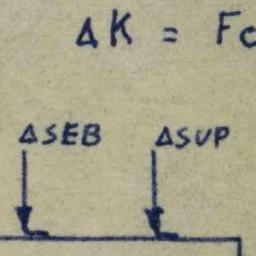 ΔK = Fc
ΔSEB ΔSUP